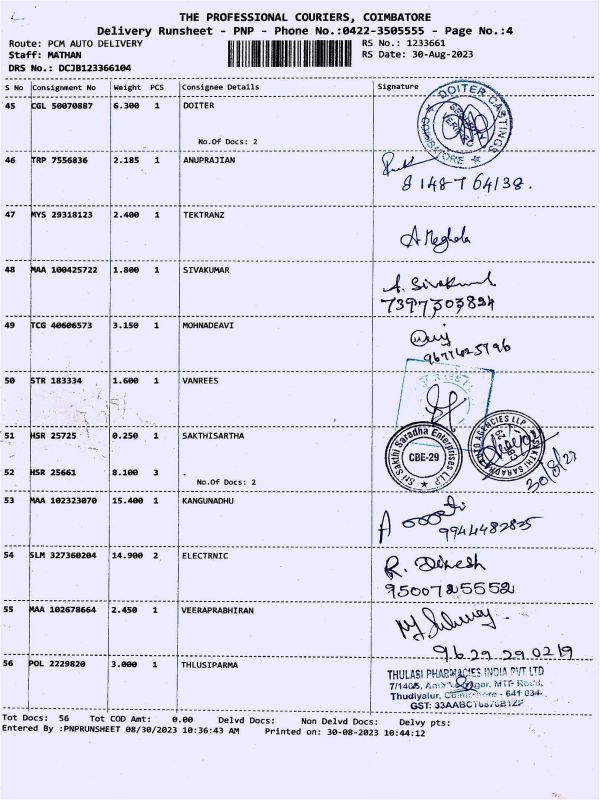 THE PROFESSIONAL COURIERS, COIMBATORE
Delivery Runsheet - PNP - Phone No.:0422-3505555 - Page No.:4
Route: PCM AUTO DELIVERY RS No.: 1233661
Staff: MATHAN RS Date: 30-Aug-2023
DRS No.: DCJB123366104
S No Consignment No Weight PCS Consignee Details Signature
45 CGL 50070887 6.300 1 DOITER
DOITER CASTINGS COIMBATORE
No.Of Docs: 2
46 TRP 7556836 2.185 1 ANUPRAJIAN
8148764138.
47 MYS 29318123 2.400 1 TEKTRANZ
A Meghala
48 MAA 100425722 1.800 1 SIVAKUMAR
A. Sivakumar
7397303824
49 TCG 40606573 3.150 1 MOHNADEAVI
9677425796
50 STR 183334 1.600 1 VANREES
51 HSR 25725 0.250 1 SAKTHISARTHA
Sri Sakthi Saradha Enterprises LLP
CBE-29
AGENCIES LLP
30/8/23
52 HSR 25661 8.100 3 .
No.Of Docs: 2
53 MAA 102323070 15.400 1 KANGUNADHU
9944482825
54 SLM 327360204 14.900 2 ELECTRNIC
R. Dinesh
9500725552
55 MAA 102678664 2.450 1 VEERAPRABHIRAN
9629290219
56 POL 2229820 3.000 1 THLUSIPARMA
THULASI PHARMACIES INDIA PVT LTD
7/140/5, Nagar, MTP Road,
Thudiyalur, Coimbatore - 641 034.
GST:
Tot Docs: 56 Tot COD Amt: 0.00 Delvd Docs: Non Delvd Docs: Delvy pts:
Entered By :PNPRUNSHEET 08/30/2023 10:36:43 AM Printed on: 30-08-2023 10:44:12